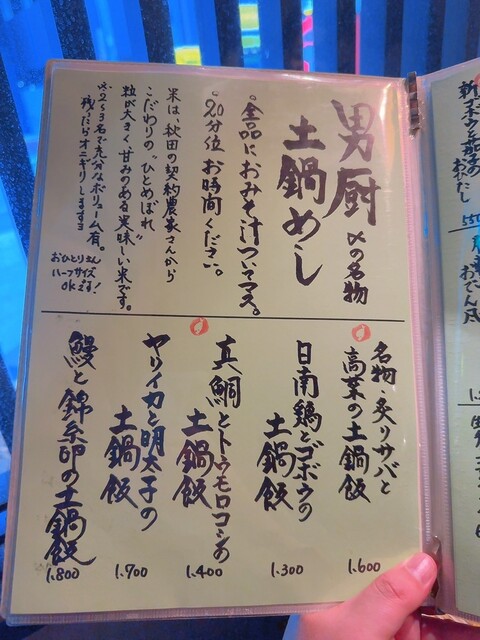 男厨 〆の名物
土鍋めし
全品におみそ汁ついてマス。
20分位お時間ください。
米は、秋田の契約農家さんから
こだわりの"ひとめぼれ"
粒が大きく、甘みのある美味しい米です。
※2~3名で充分なボリューム有。
残ったらオニギリします
おひとりさん
ハーフサイズ
OKです!
名物 炙りサバと
高菜の土鍋飯
1.600
日南鶏とゴボウの
土鍋飯
1.300
真鯛とトウモロコシの
土鍋飯
1.400
ヤリイカと明太子の
土鍋飯
1.700
鰻と錦糸卵の土鍋飯
1.800
新ゴボウと茄子の
おひたし
550
おでん風